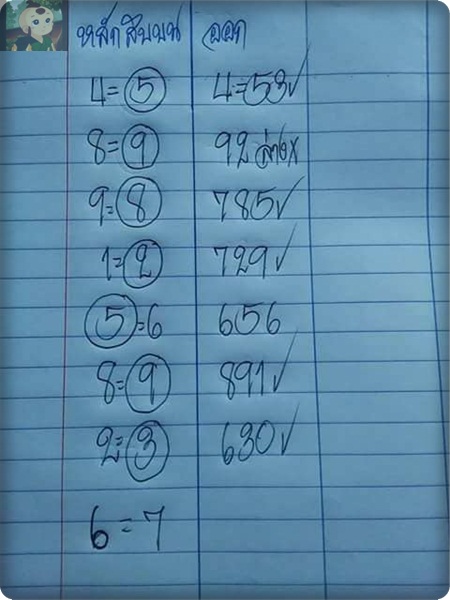 หลักสิบบน ออก
4=5 4=53✓
8=9 92 ล่าง×
9=8 785✓
1=2 729✓
5=6 656
8=9 891✓
2=3 630✓
6=7